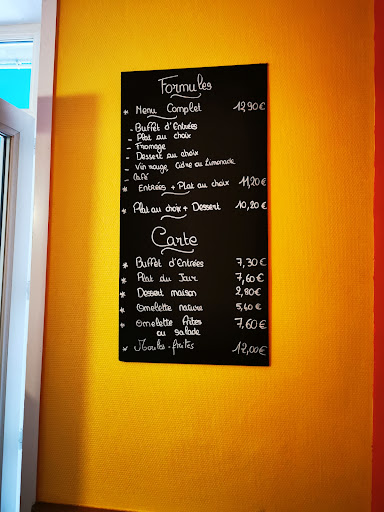 Formules
* Menu Complet 12,90€
- Buffet d'Entrées
- Plat au choix
- Fromage
- Dessert au choix
- Vin rouge Cidre ou Limonade
- Café
* Entrées + Plat au choix 11,20€
* Plat au choix + Dessert 10,20€
Carte
* Buffet d'Entrées 7,30€
* Plat du Jour 7,60€
* Dessert maison 2,80€
* Omelette nature 5,40€
* Omelette frites 7,60€
ou salade
* Moules-frites 12,00€